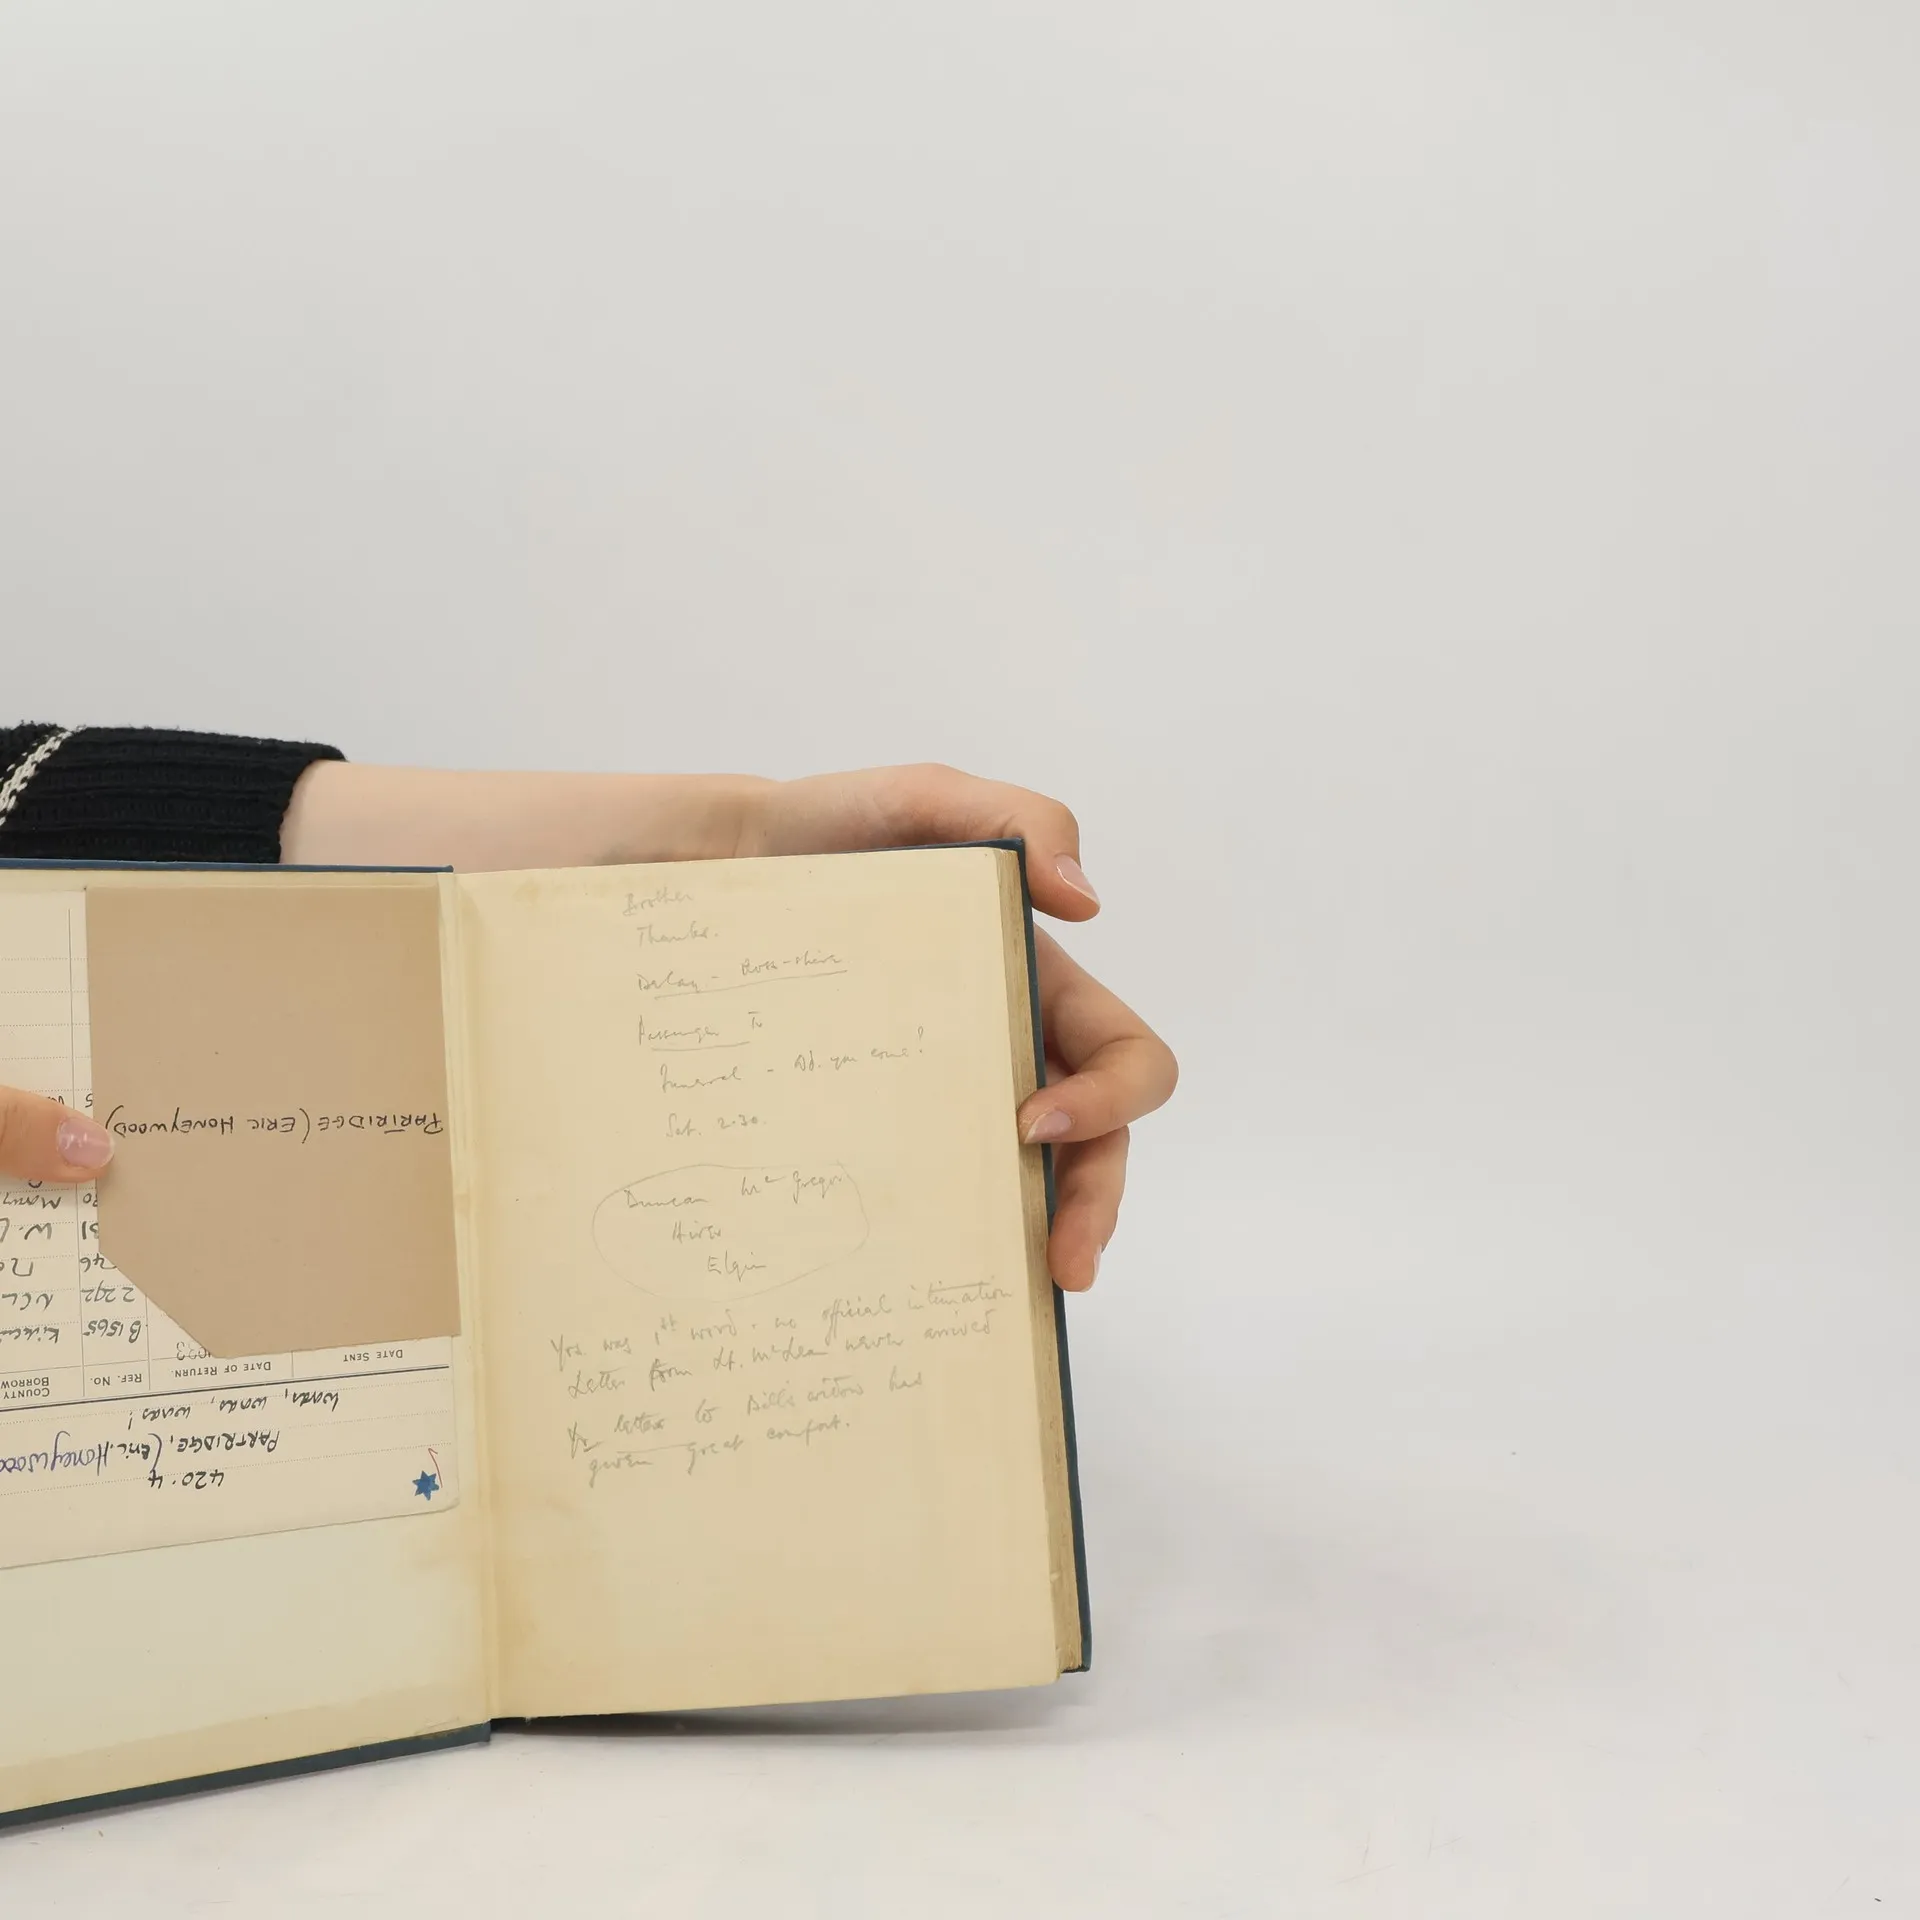 Brother
Thanks.
Delay - Ross-shire
Passenger Tr
Funeral - Cd. you come?
Sat. 2.30.
Duncan McGregor
Hirer
Elgin
Yrs. was 1st word - no official intimation
Letter from Lt. McLean never arrived
Yr letter to Bill's widow has
given great comfort.
PARTRIDGE (ERIC HONEYWOOD)
420.4
PARTRIDGE, (Eric Honeywood
Words, words, words!
DATE SENT DATE OF RETURN. REF. No. COUNTY BORROW
B1565
2292 NCL
46
31 W.